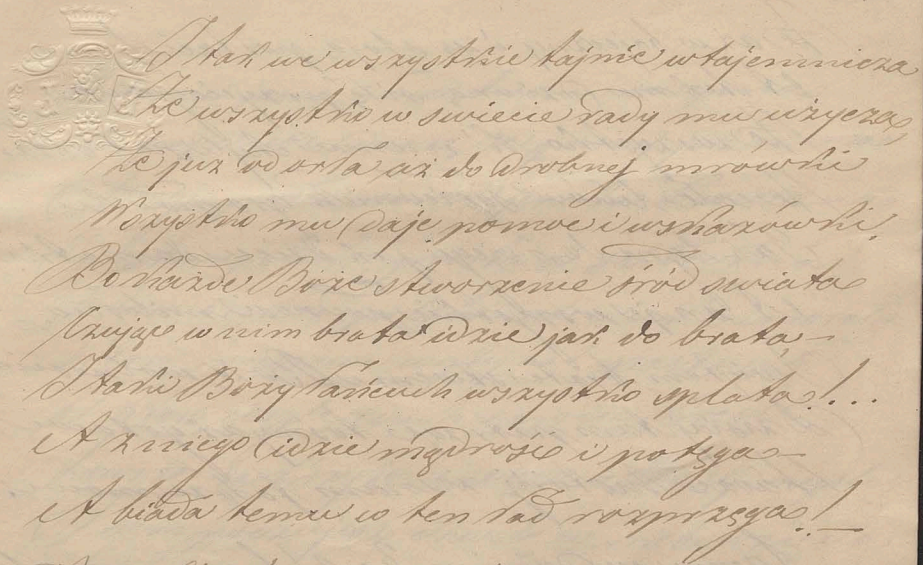 I tak we wszystkie tajnie wtajemnicza
Że wszystko w swiecie rady mu użycza,
Że już od orła aż do drobnej mrówki
Wszystko mu daje pomoc i wskazówki.
Bo każde Boże stworzenie śród swiata
Czując w nim brata idzie jak do brata,—
I taki Boży łańcuch wszystko splata!...
A z niego idzie mądrość i potęga—
A biada temu co ten ład rozprzęga!—